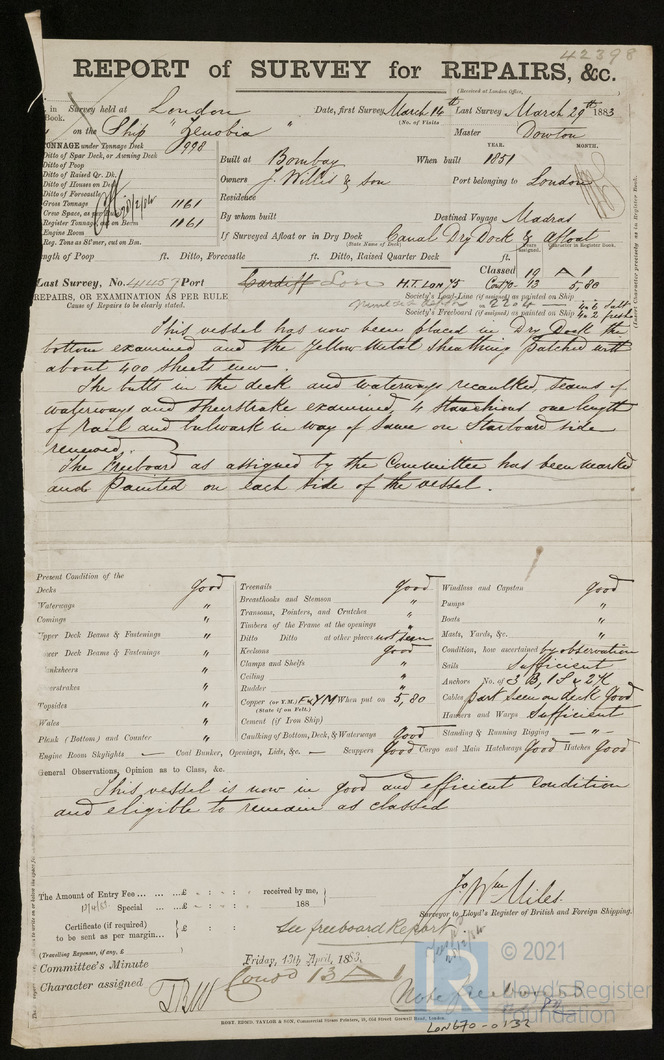 42398
REPORT of SURVEY for REPAIRS, &c.
(Received at London Office,
in Book. Survey held at London Date, first Survey March 14th Last Survey March 29th 1883
(No. of Visits
on the Ship "Zenobia" Master Dowton
TONNAGE under Tonnage Deck 998
YEAR. MONTH.
Ditto of Spar Deck, or Awning Deck
Ditto of Poop
Built at Bombay When built 1851
Ditto of Raised Qr. Dk.
Ditto of Houses on Deck
Owners J. Willis & Son Port belonging to London
Ditto of Forecastle
Gross Tonnage 1161
Residence
Crew Space, as per Rule
Register Tonnage on Beam 1161
By whom built Destined Voyage Madras
Engine Room
Reg. Tons as St'mer, cut on Bm.
If Surveyed Afloat or in Dry Dock Canal Dry Dock & afloat
(State Name of Dock)
Years assigned. Character in Register Book.
ngth of Poop ft. Ditto, Forecastle ft. Ditto, Raised Quarter Deck ft.
Classed 19 A 1
Last Survey, No. 41457 Port Cardiff Lon H.T. Lon, 75 Cont70- 13 5,80
REPAIRS, OR EXAMINATION AS PER RULE
Cause of Repairs to be clearly stated.
Society's Load-Line (if assigned) as painted on Ship
Society's Freeboard (if assigned) as painted on Ship
This vessel has now been placed in Dry Dock the
bottom examined and the Yellow Metal sheathing patched with
about 400 sheets new.
The butts in the deck and waterways recaulked, seams of
waterways and sheerstrake examined, 4 stanchions one length
of rail and bulwark in way of same on Starboard side
renewed.
The Freeboard as assigned by the Committee has been marked
and painted on each side of the vessel.
Present Condition of the
Decks good
Waterways "
Comings "
Upper Deck Beams & Fastenings "
Lower Deck Beams & Fastenings "
Planksheers "
Sheerstrakes "
Topsides "
Wales "
Plank (Bottom) and Counter "
Treenails good
Breasthooks and Stemson "
Transoms, Pointers, and Crutches "
Timbers of the Frame at the openings "
Ditto Ditto at other places not seen
Keelsons good
Clamps and Shelfs "
Ceiling "
Rudder "
Copper (or Y.M.) F & YM When put on 5,80
(State if on Felt.)
Cement (if Iron Ship)
Caulking of Bottom, Deck, & Waterways Good
Windlass and Capstan good
Pumps "
Boats "
Masts, Yards, &c. "
Condition, how ascertained by observation
Sails Sufficient
Anchors No. of 3 B, 1 S & 2 K
Cables part seen on deck Good
Hawsers and Warps Sufficient
Standing & Running Rigging — " —
Engine Room Skylights — Coal Bunker, Openings, Lids, &c. — Scuppers Good Cargo and Main Hatchways Good Hatches Good
General Observations, Opinion as to Class, &c.
This vessel is now in good and efficient condition
and eligible to remain as classed
The Amount of Entry Fee ... £ : : received by me,
Special ... £ : : 188
Certificate (if required)
to be sent as per margin... £ : :
Jo Wm Miles.
Surveyor to Lloyd's Register of British and Foreign Shipping.
See freeboard Report
(Travelling Expenses, if any, £
Committee's Minute Friday, 13th April, 1883.
Character assigned Contd 13 A 1
© 2021
Lloyd's Register
Foundation
LR
Note freeboard
ROBT. EDMD. TAYLOR & SON, Commercial Steam Printers, 19, Old Street Goswell Road, London.
LON670-0132